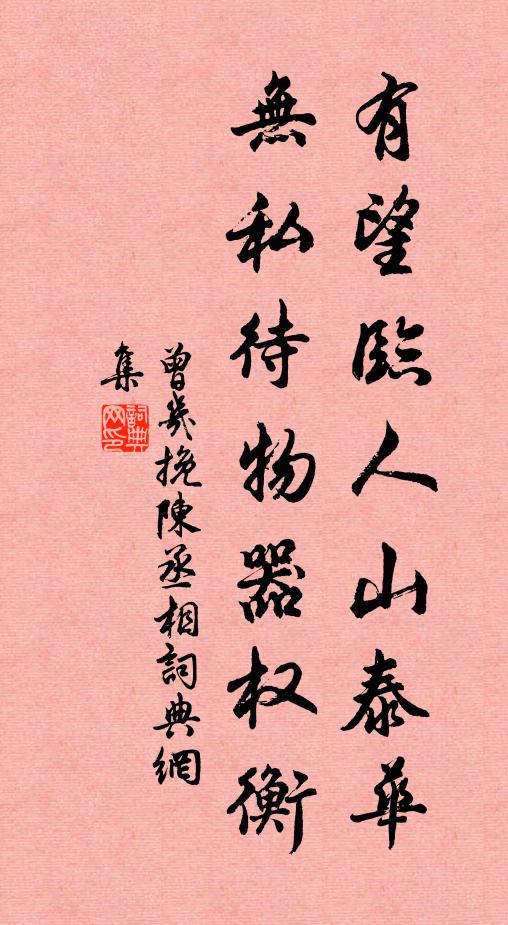 有望臨人山泰華
無私待物器权衡
曾幾挽陳丞相詞典網
集
詞典
网印